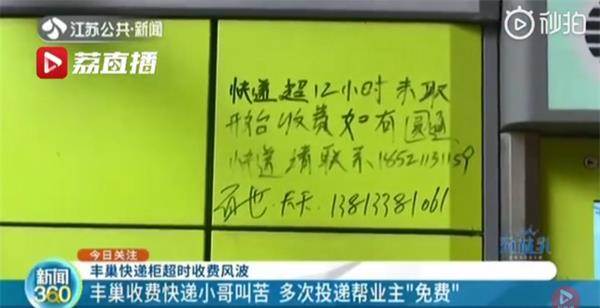 江苏公共·新闻
荔直播
秒拍
快递超12小时未取
开始收费如有圆通
快递请联系18521131159
百世.天天.13813381061
今日关注
丰巢快递柜超时收费风波
新闻360
丰巢收费快递小哥叫苦 多次投递帮业主"免费"